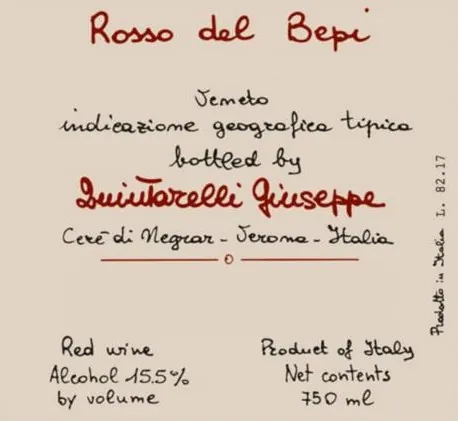 Rosso del Bepi
Veneto
indicazione geografica tipica
bottled by
Quintarelli Giuseppe
Cerè di Negrar - Verona - Italia
Red wine
Alcohol 15.5%
by volume
Product of Italy
Net contents
750 ml
Prodotto in Italia L. 82.17